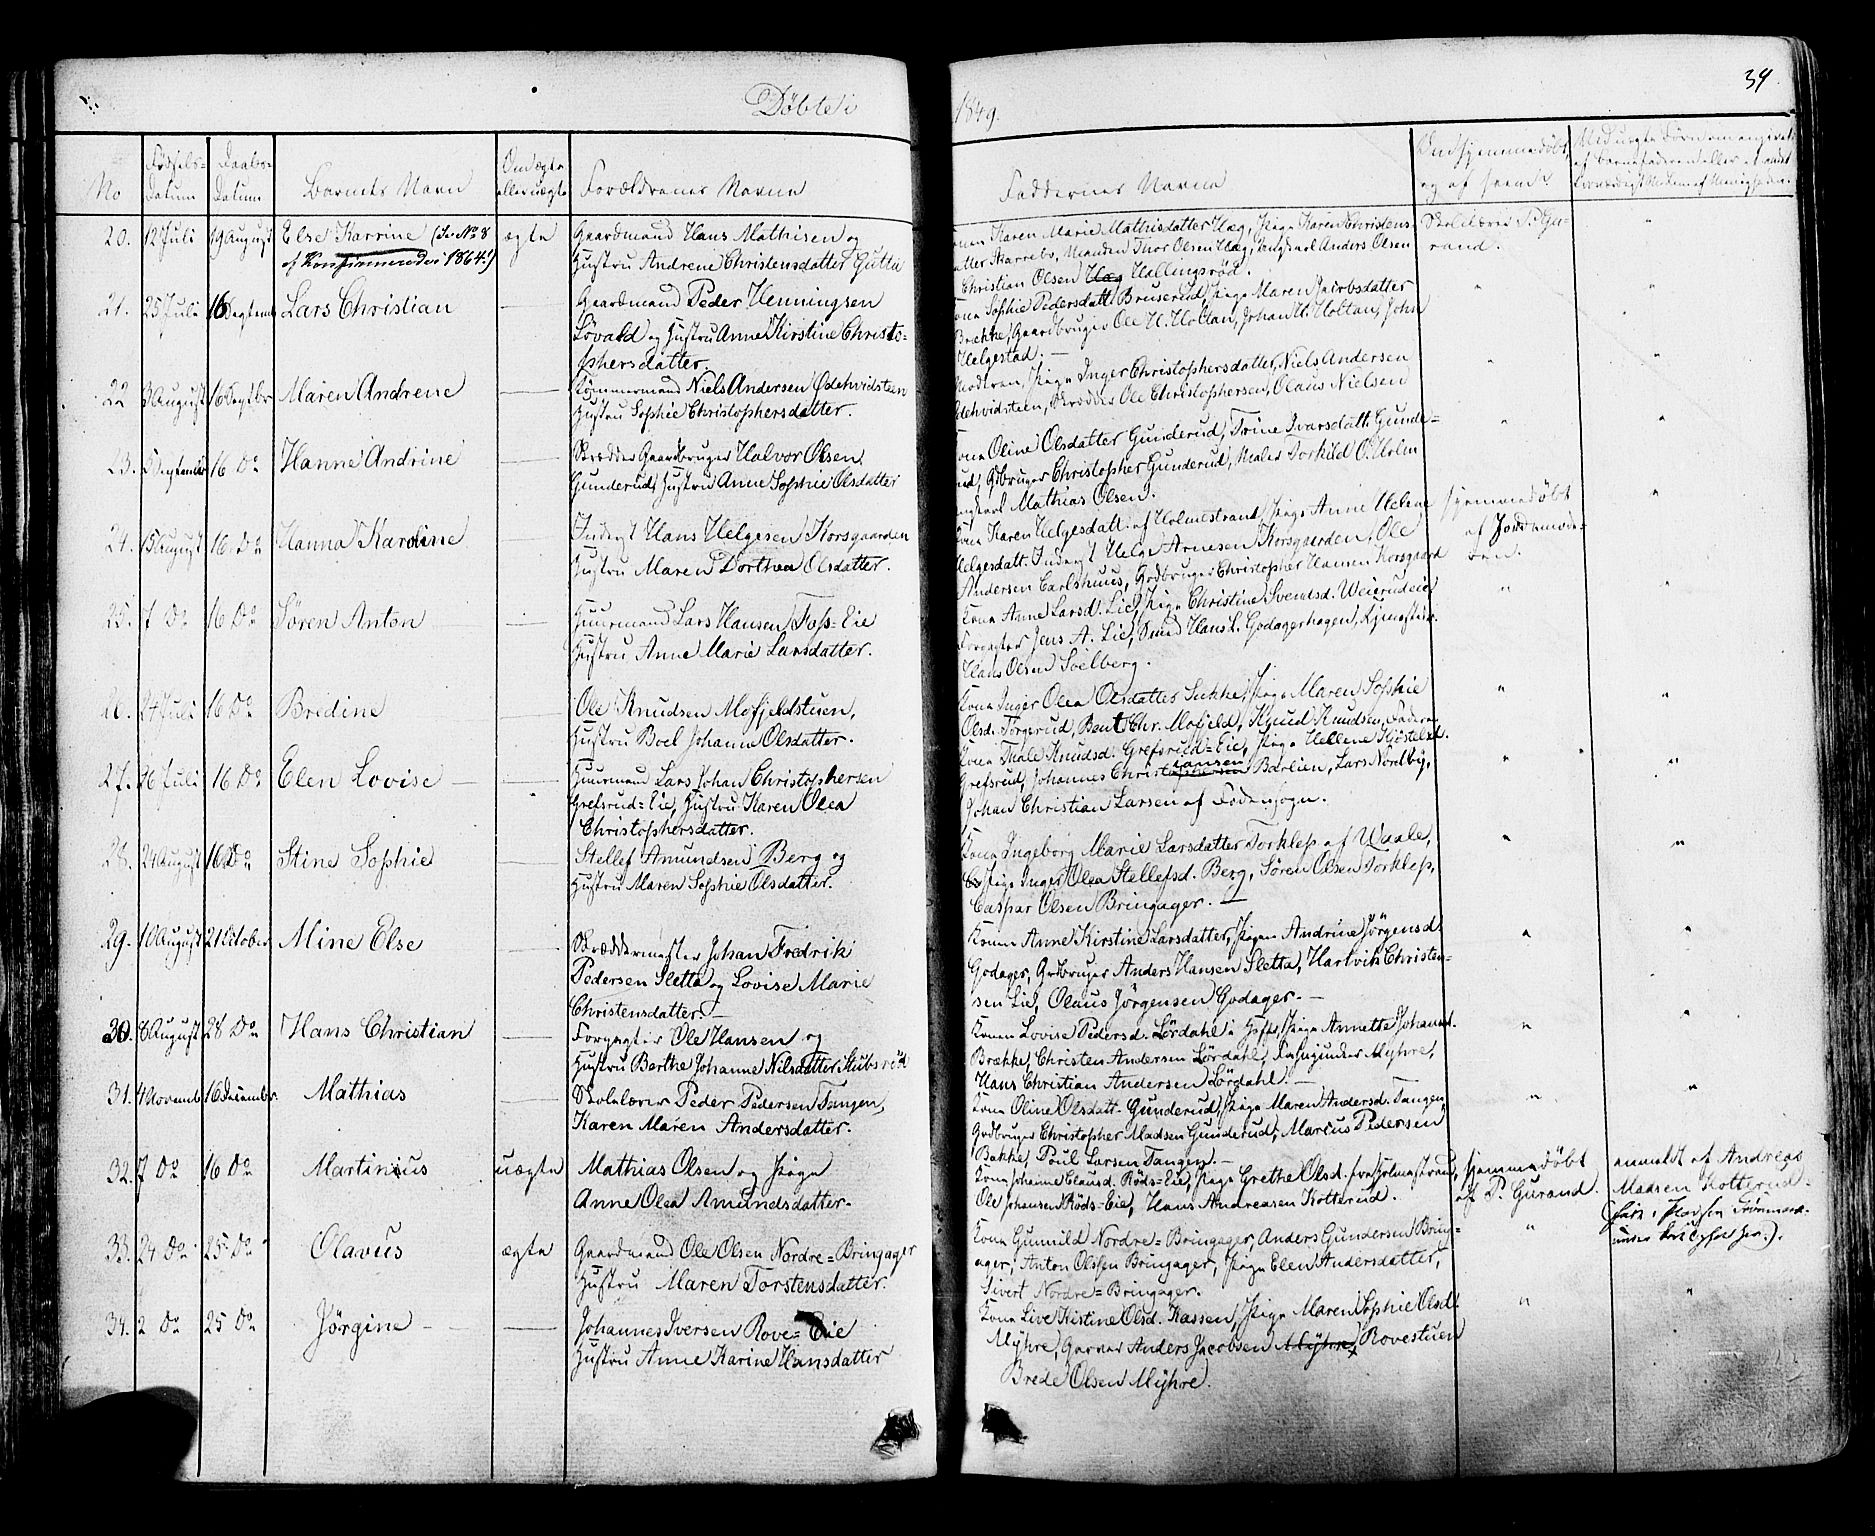 34
Döbte i 1849.
No
Fødsels-Datum
Daabs-Datum
Barnets Navn
Om ægte eller uægte
Forældrenes Navne
Faddernes Navne
Om hjemmedøbt, og af hvem?
20. 12 Juli 19 August Else Karrine (Se No 8 af Konfirmerede i 1864) ægte
Gaardmand Hans Mathisen og
Hustru Andrene Christensdatter Gutta
Karen Marie Mathisdatter Hæg, Pige Karen Christens-
Skarrebo, Manden Thor Olsen Hæg, Ungkarl Anders Olsen
Christian Olsen Hæg Hallingsröd.
Skolelærer P. Gu-
rand.
21. 25 Juli 16 Septemb Lars Christian
Gaardmand Peder Henningsen
Lövald og Hustru Anne Kirstine Christo-
phersdatter
Kona Sophie Pedersdatt. Bruserud, Pige Maren Jacobsdatter
Brekke, Gaardbruger Ole H. Holtan, Johan H. Holtan, John
Helgestad. —
22 3 August 16 Septbr Maren Andrene
Tömmermand Niels Andersen Ødehvidsteen
Hustru Sophie Christophersdatter.
Modren, Pige Inger Christophersdatter, Niels Andersen
Ødehvidsteen, Skrædder Ole Christophersen, Olaus Nielsen
23. 5 September 16 Do Hanne Andrine
Skrædder Gaardbruger Halvor Olsen
Gunderud, Hustru Anne Sophie Olsdatter
Kona Oline Olsdatter Gunderud, Trine Ivarsdatt. Gunde-
rud, Grdbruger Christopher Gunderud, Maler Torkild O. Holm
Ungkarl Mathias Olsen.
24. 15 August 16 Do Hanna Karoline
Inderst Hans Helgesen Korsgaarden
Hustru Maren Dorthea Olsdatter.
Kona Karen Helgesdatt. af Holmestrand, Pige Anne Helene
Helgesdatt. Inderst Helge Arnesen Korsgaarden, Ole
Andersen Carlshuus, Grdbruger Christopher Hansen Korsgaard
hjemmedøbt
af Jordemode-
ren.
25. 7 Do 16 Do Søren Anton
Huusmand Lars Hansen Foss-Eie
Hustru Anne Marie Larsdatter.
Kona Anne Larsd. Lie, Pige Christine Svendsd. Weierudeie
Forpagter Jens A. Lie, Smed Hans L. Godagerhagen,
Hans Olsen Solberg.
26. 24 Juli 16 Do Bredine
Ole Knudsen Mofjeldstuen,
Hustru Boel Johanne Olsdatter.
Kona Inger Olea Olsdatter Sukke, Pige Maren Sophie
Olsd. Torgerud, Bent Chr. Mofjeld, Knud Knudsen, Faderen
27. 26 Juli 16 Do Elen Lovise —
Huusmand Lars Johan Christophersen
Grefsrud-Eie, Hustru Karen Olea
Christophersdatter.
Kona Thale Knudsd. Grefsrud-Eie, Pige Hellene Kjöstelsd.
Grefsrud, Johannes Christophersen iansen Barlien, Lars Nordby,
Johan Christian Larsen af Fodensogn.
28. 24 August 16 Do Stine Sophie
Stellef Amundsen Berg og
Hustru Maren Sophie Olsdatter.
Kona Ingeborg Marie Larsdatter Torklep af Waale,
Pige Inger Olea Stellefsd. Berg, Søren Olsen Torklep,
Caspar Olsen Bringager. —
29. 10 August 21 October Mine Else
Skræddermester Johan Fredrik
Pedersen Sletta og Lovise Marie
Christensdatter —
Konen Anne Kirstine Larsdatter, Pigen Andrine Jörgensd.
Godager, Grdbruger Anders Hansen Sletta, Hartvik Christen-
sen Lie, Olaus Jörgensen Godager. —
30. 8 August 28 Do Hans Christian
Forpagter Ole Hansen og
Hustru Berthe Johanne Nilsdatter Stubsrud
Konen Lovise Pedersd. Lördahl i Hof, Pige Annette Johansd.
Brække, Christen Andersen Lördahl, Myhre,
Hans Christian Andersen Lördahl. —
31. 4 Novemb 16 December Mathias
Skolelærer Peder Pedersen Tangen,
Karen Maren Andersdatter.
Kona Oline Olsdatt. Gunderud, Pige Maren Andersd. Tangen,
Grdbruger Christopher Madsen Gunderud, Marcus Pedersen
Bakke, Poul Larsen Tangen. —
32. 7 Do 16 Do Martinius uægte
Mathias Olsen og Pige
Anne Olea Amundsdatter.
Kona Johanne Clausd. Röds-Eie, Pige Grethe Olsd. fra Holmestrand,
Ole Johansen Röds-Eie, Hans Andreasen Kotterud.
hjemmedøbt
af P. Gurand.
anmeldt af Andreas
Madsen Kotterud.
33. 24 Do 25 Do Olavus ægte
Gaardmand Ole Olsen Nordre-Bringager
Hustru Maren Torstensdatter.
Kona Gunnild Nordre-Bringager, Anders Gundersen Bring-
ager, Anton Olssen Bringager, Pige Elen Andersdatter,
Sivert Nordre-Bringager.
34. 2 Do 25 Do Jørgine —
Johannes Iversen Rove-Eie
Hustru Anne Karine Hansdatter
Kona Live Kistine Olsd. Kassen, Pige Maren Sophie Olsd.
Myhre, Garver Anders Jacobsen Myhre Rovestuen
Brede Olsen Myhre.